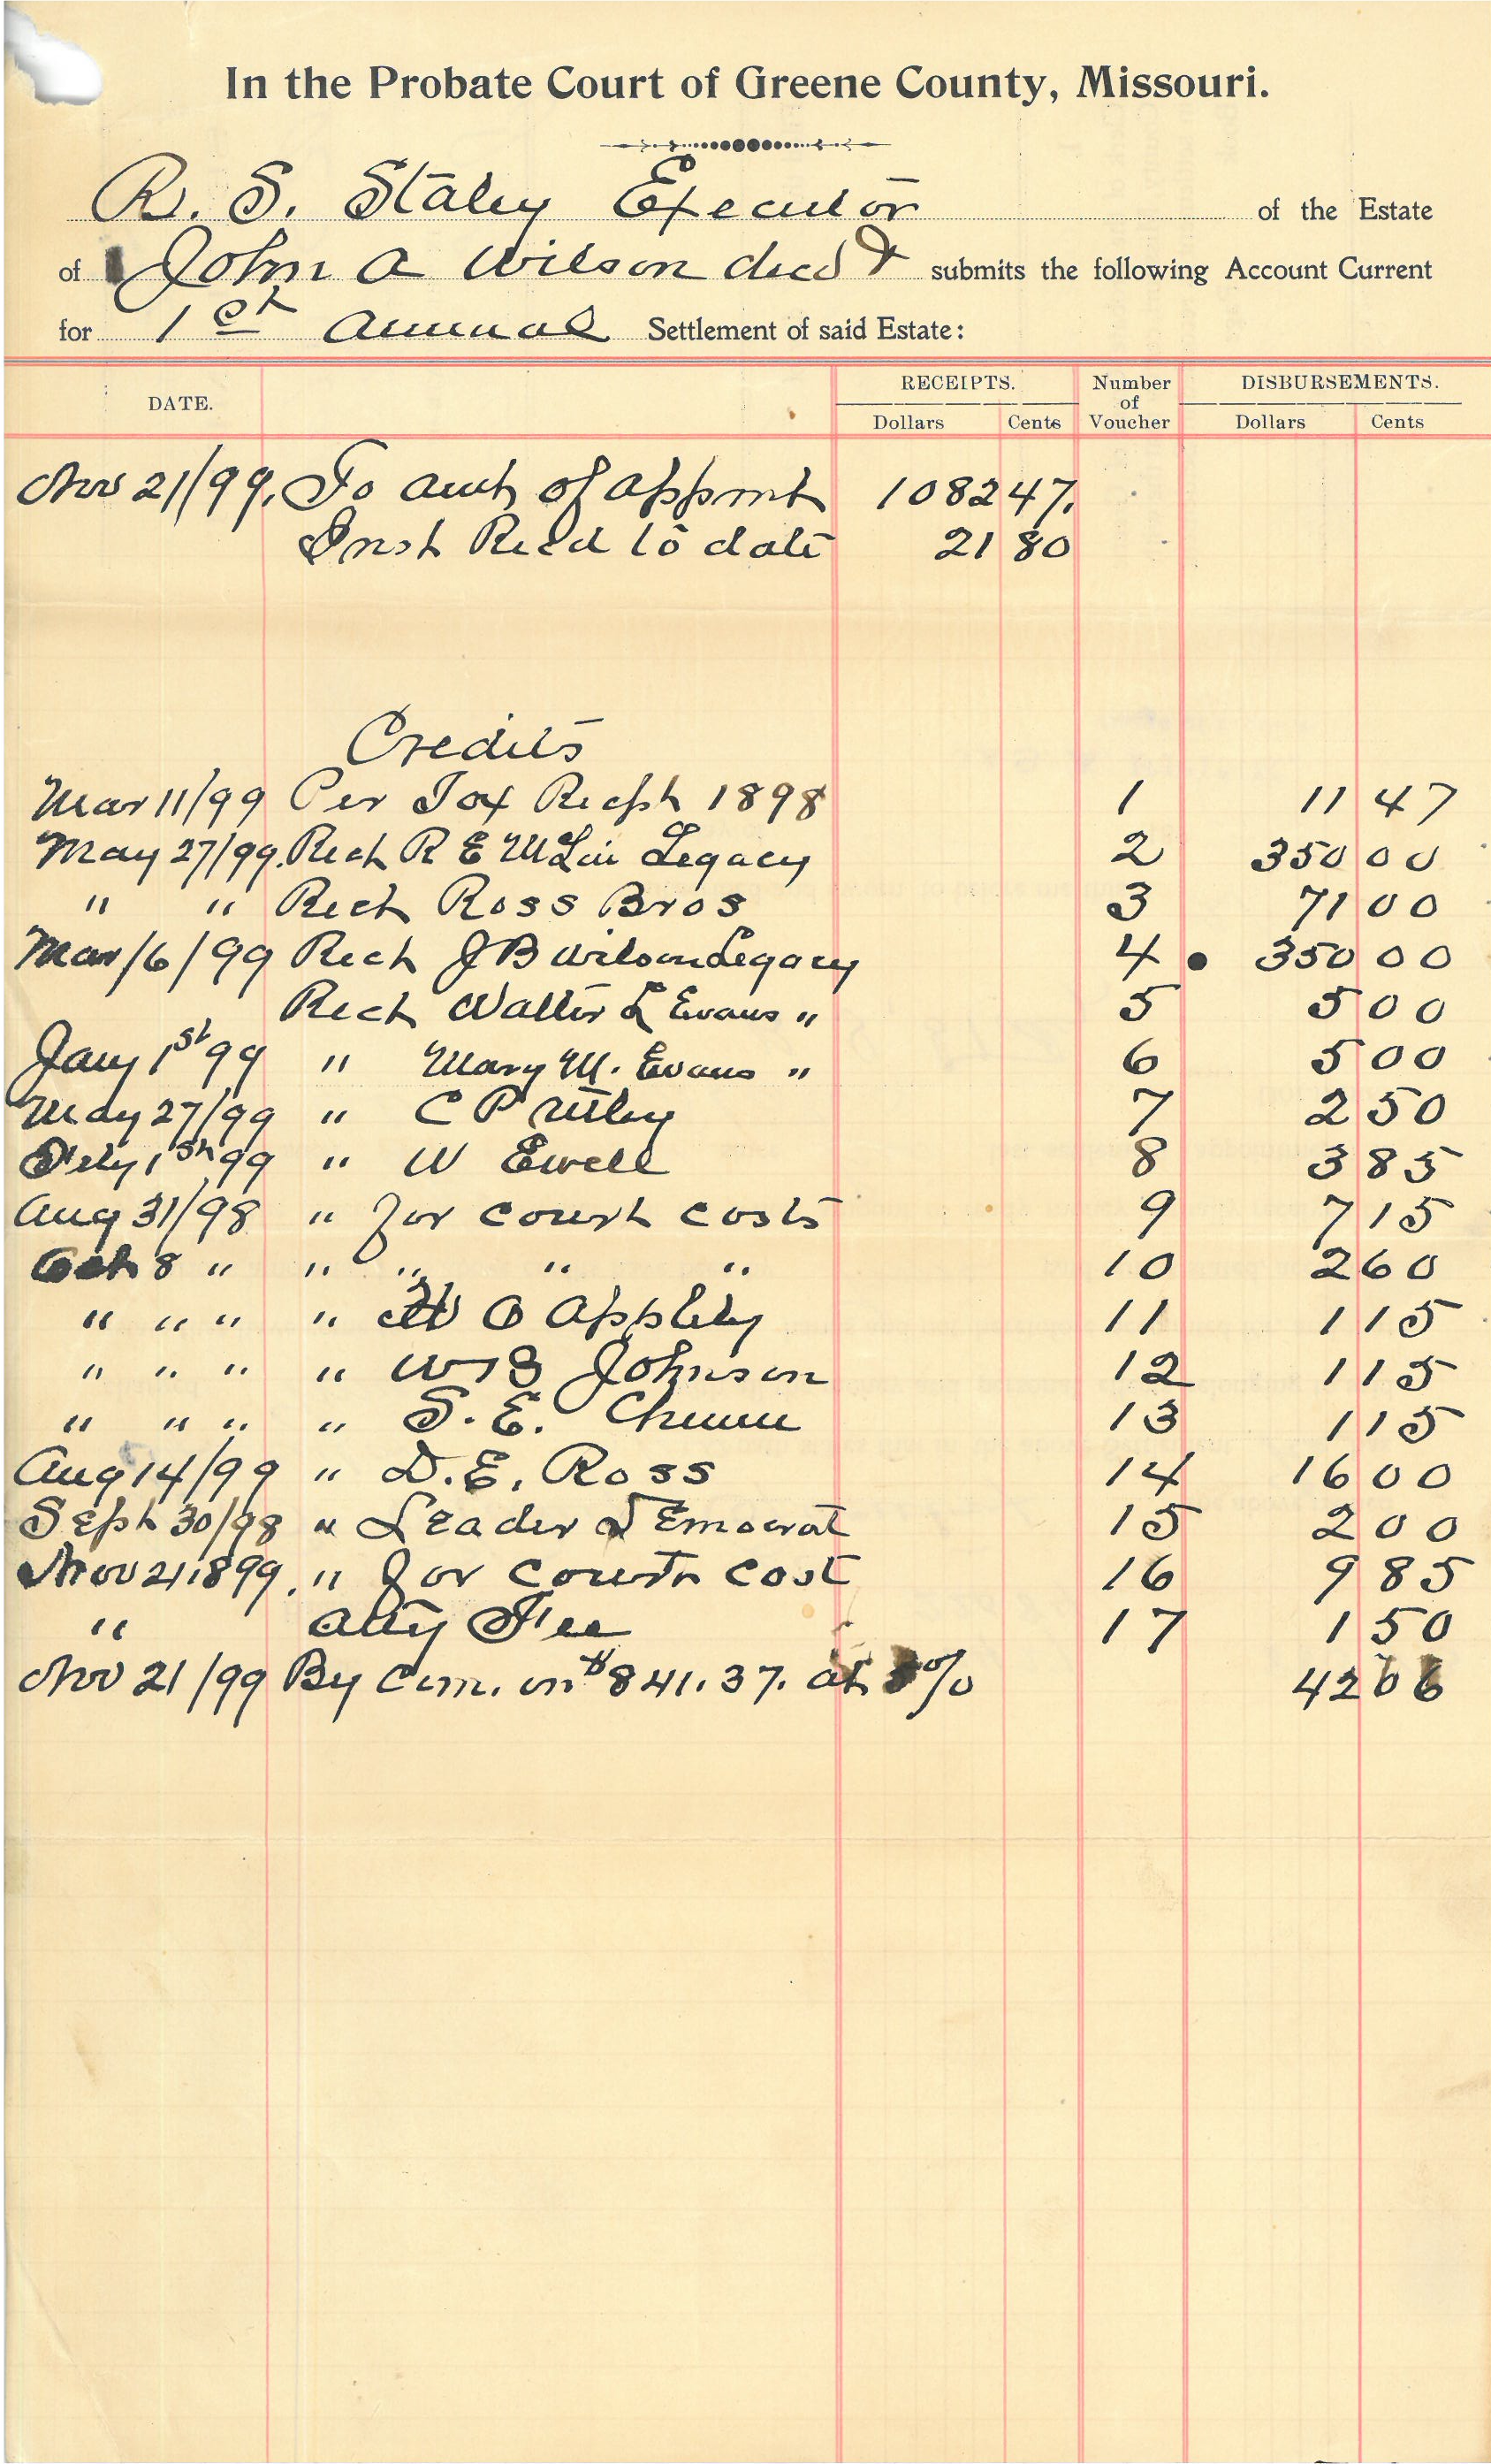 In the Probate Court of Greene County, Missouri.
R. S. Staley Executor of the Estate
of John A Wilson decd submits the following Account Current
for 1st Annual Settlement of said Estate:
DATE. RECEIPTS. Dollars Cents Number of Voucher DISBURSEMENTS. Dollars Cents
Nov 21/99. To amt of appmt 1082 47.
Inst Recd to date 21 80
Credits
Mar 11/99 Per Tax Recpt 1898 1 11 47
May 27/99. Rect R E McLin Legacy 2 350 00
" " Rect Ross Bros 3 71 00
Mar 16/99 Rect J B Wilson Legacy 4 350 00
Rect Walter L Evans " 5 5 00
Jany 1st 99 " Mary M. Evans " 6 5 00
May 27/99 " C P Utley 7 2 50
1st 99 " W Ewell 8 3 85
Aug 31/98 " for court costs 9 7 15
Oct 8 " " " " " 10 2 60
" " " " O Appleby 11 1 15
" " " " W B Johnson 12 1 15
" " " " S. E. 13 1 15
Aug 14/99 " D. E. Ross 14 16 00
Sept 30/98 " Leader Democrat 15 2 00
Nov 21 1899. " for court cost 16 9 85
" Atty Fee 17 1 50
Nov 21/99 By Com. on $841.37. at 5% 42 06